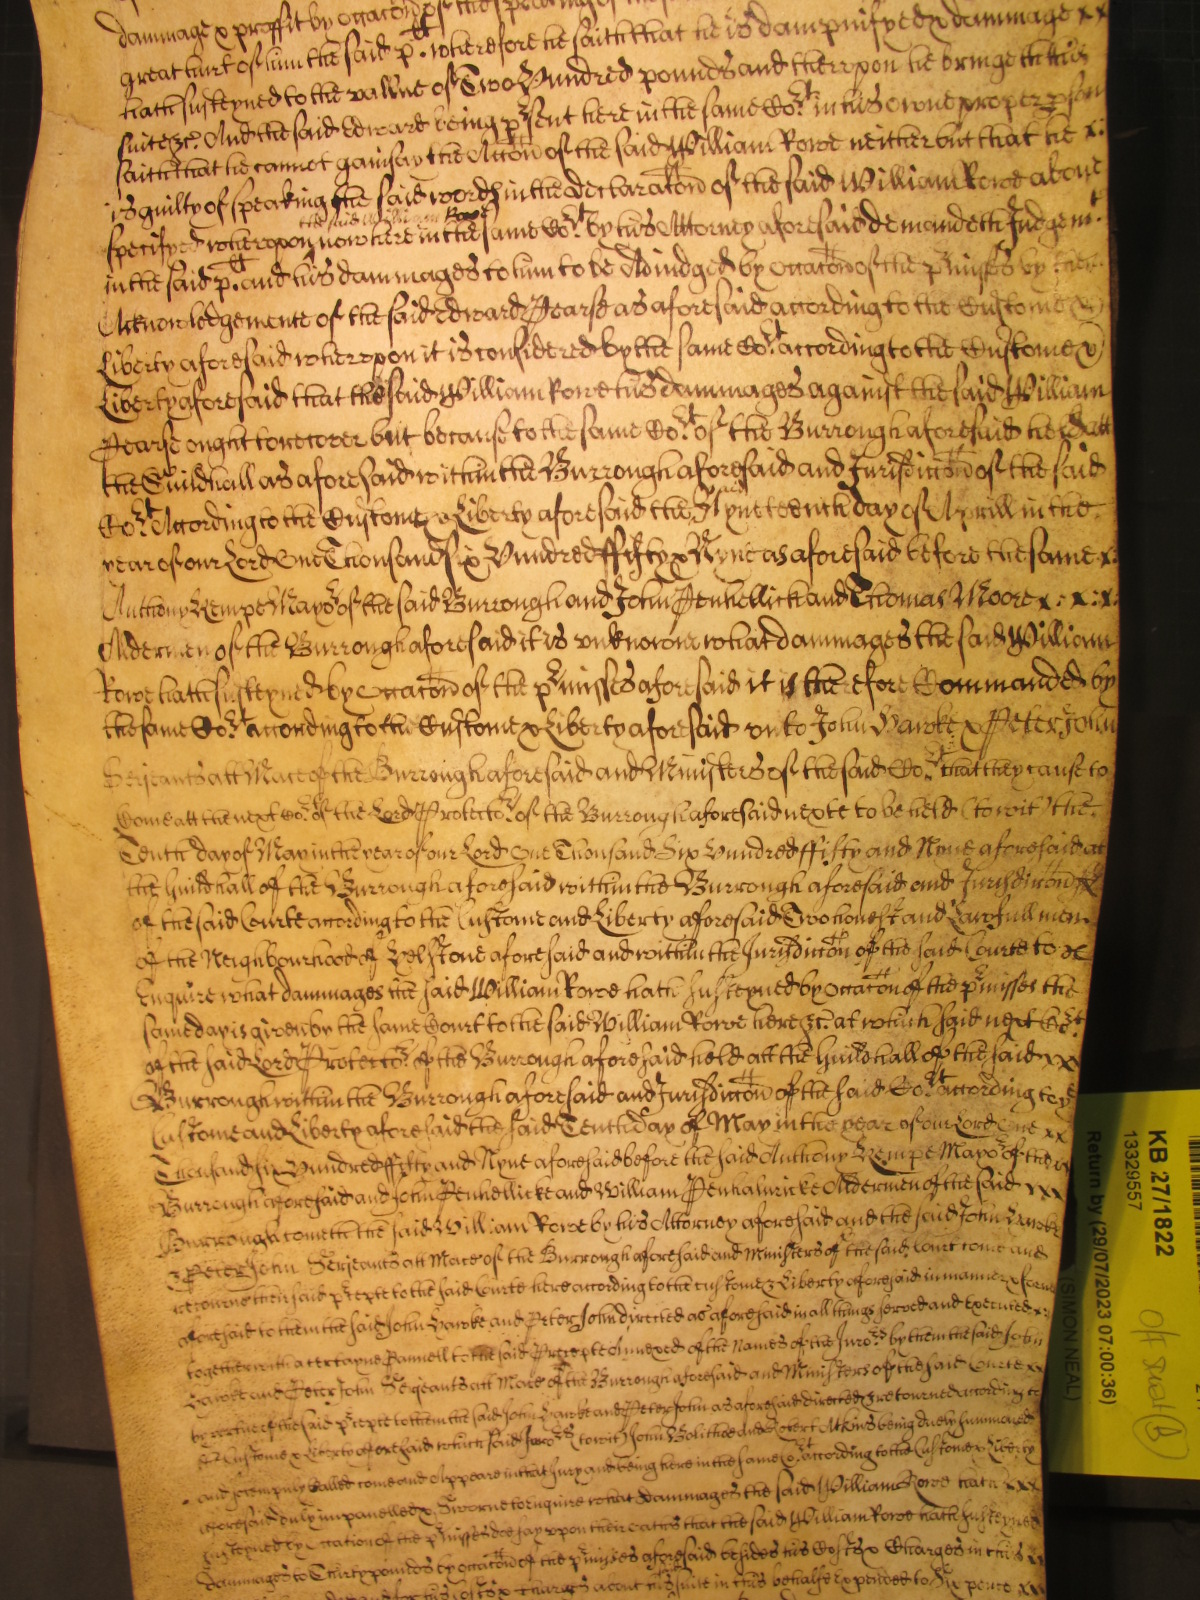 dammage & proffit by occac̃on of the speaking of the
great hurt of him the said p̱ł. wherefore he saith that he is dampnifyed & dammage x x
hath susteyned to the vallue of Two Hundred pounds and thereupon he bringeth this
suite &c. And the said Edward being p̱sent here in the same Cort. in his owne proper p̱son
saith that he cannot gainsay the Acc̃on of the said William Rowe neither but that he x:
is guilty of speaking the said words in the declarac̃on of the said William Rowe above
the said William Rowe
specifyed whereupon now here in the same Cort. by his Attorney aforesaid demandeth Judgemt.
in the said p̱ł. and his dammages to him to be Adiudged by occac̃on of the p̱misses by
Acknowledgemente of the said Edward Pearse as aforesaid according to the Custome &
Liberty aforesaid whereupon it is considered by the same Cort. according to the Custome &
Liberty aforesaid that the said William Rowe his dammages against the said William
Pearse ought to recover but because to the same Cort. of the Burrough aforesaid held att
the Guildhall as aforesaid within the Burrough aforesaid and Jurisdicc̃on of the said
Cort. According to the Custome & Liberty aforesaid the Nyneteenth day of Aprill in the
year of our Lord One Thousand six Hundred ffifty & Nyne as aforesaid before the same x:
Anthony Kempe Mayor of the said Burrough and John Penhellick and Thomas Moore x: x: x:
Aldermen of the Burrough aforesaid it is unknowne what dammages the said William
Rowe hath susteyned by Occac̃on of the p̱misses aforesaid it is therefore Commanded by
the same Cort. according to the Custome & Liberty aforesaid unto John Hawke & Peter John
Serjeants att Mace of the Burrough aforesaid and Ministers of the said Cort. that they cause to
Come att the next Cort. of the Lord Protector. of the Burrough aforesaid nexte to be held (to wit) the
Tenth day of May in the year of our Lord One Thousand Six Hundred ffifty and Nyne aforesaid at
the Guildhall of the Burrough aforesaid within the Burrough aforesaid and Jurisdicc̃on
of the said Courte according to the Custome and Liberty aforesaid Two honest and Lawfull men
of the Neighbourhood of Helstone aforesaid and within the Jurisdicc̃on of the said Courte to x
Enquire what dammages the said William Rowe hath susteyned by occac̃on of the p̱misses the
same day is given by the same Court to the said William Rowe here &c. at which said next Cort.
of the said Lord Protector. of the Burrough aforesaid held att the Guildhall of the said x x
Burrough within the Burrough aforesaid and Jurisdicc̃on of the said Cort. according to ye
Custome and Liberty aforesaid the said Tenth day of May in the year of our Lord One x x
Thousand six Hundred ffifty and Nyne aforesaid before the said Anthony Kempe Mayor of the
Burrough aforesaid and John Penhellicke and William Penhaluricke Aldermen of the said x x x
Burrough cometh the said William Rowe by his Attorney aforesaid and the said John Hawke
& Peter John Serjeants att Mace of the Burrough aforesaid and Ministers of the said Court come and
retourne their said p̱cepte to the said Courte here according to the custome & Liberty aforesaid in manner & forme
aforesaid to them the said John Hawke and Peter John directed as aforesaid in all things served and Executed x x
together with a certayne Pannell to the said Precepte Annexed of the Names of the Juror.s by them the said John
Hawke and Peter John Serjeants att Mace of the Burrough aforesaid and Ministers of the said Courte x x
by vertue of the said p̱cepte to them the said John Hawke and Peter John as aforesaid directed & retourned according to
ye Custome & Liberty aforesaid which said Juror.s (to wit) John Bolithoe and Robert Atkins being duely summoned
and solempnly called come and Appeare in that Jury and being here in the same Cort. according to the Custome & Liberty
aforesaid duly impanelled & Sworne to enquire what dammages the said William Rowe hath x x x
susteyned by Occasion of the p̱misses doe say upon their oathes that the said William Rowe hath susteyned
dammages to Thirty pounds by occac̃on of the p̱misses aforesaid besides his Costs & Charges in this x x
and for his costs & charges about his suite in this behalfe expended to Six pence x x
KB 27/1822
13329557
Return by (29/07/2023 07:00:36)
(SIMON NEAL)